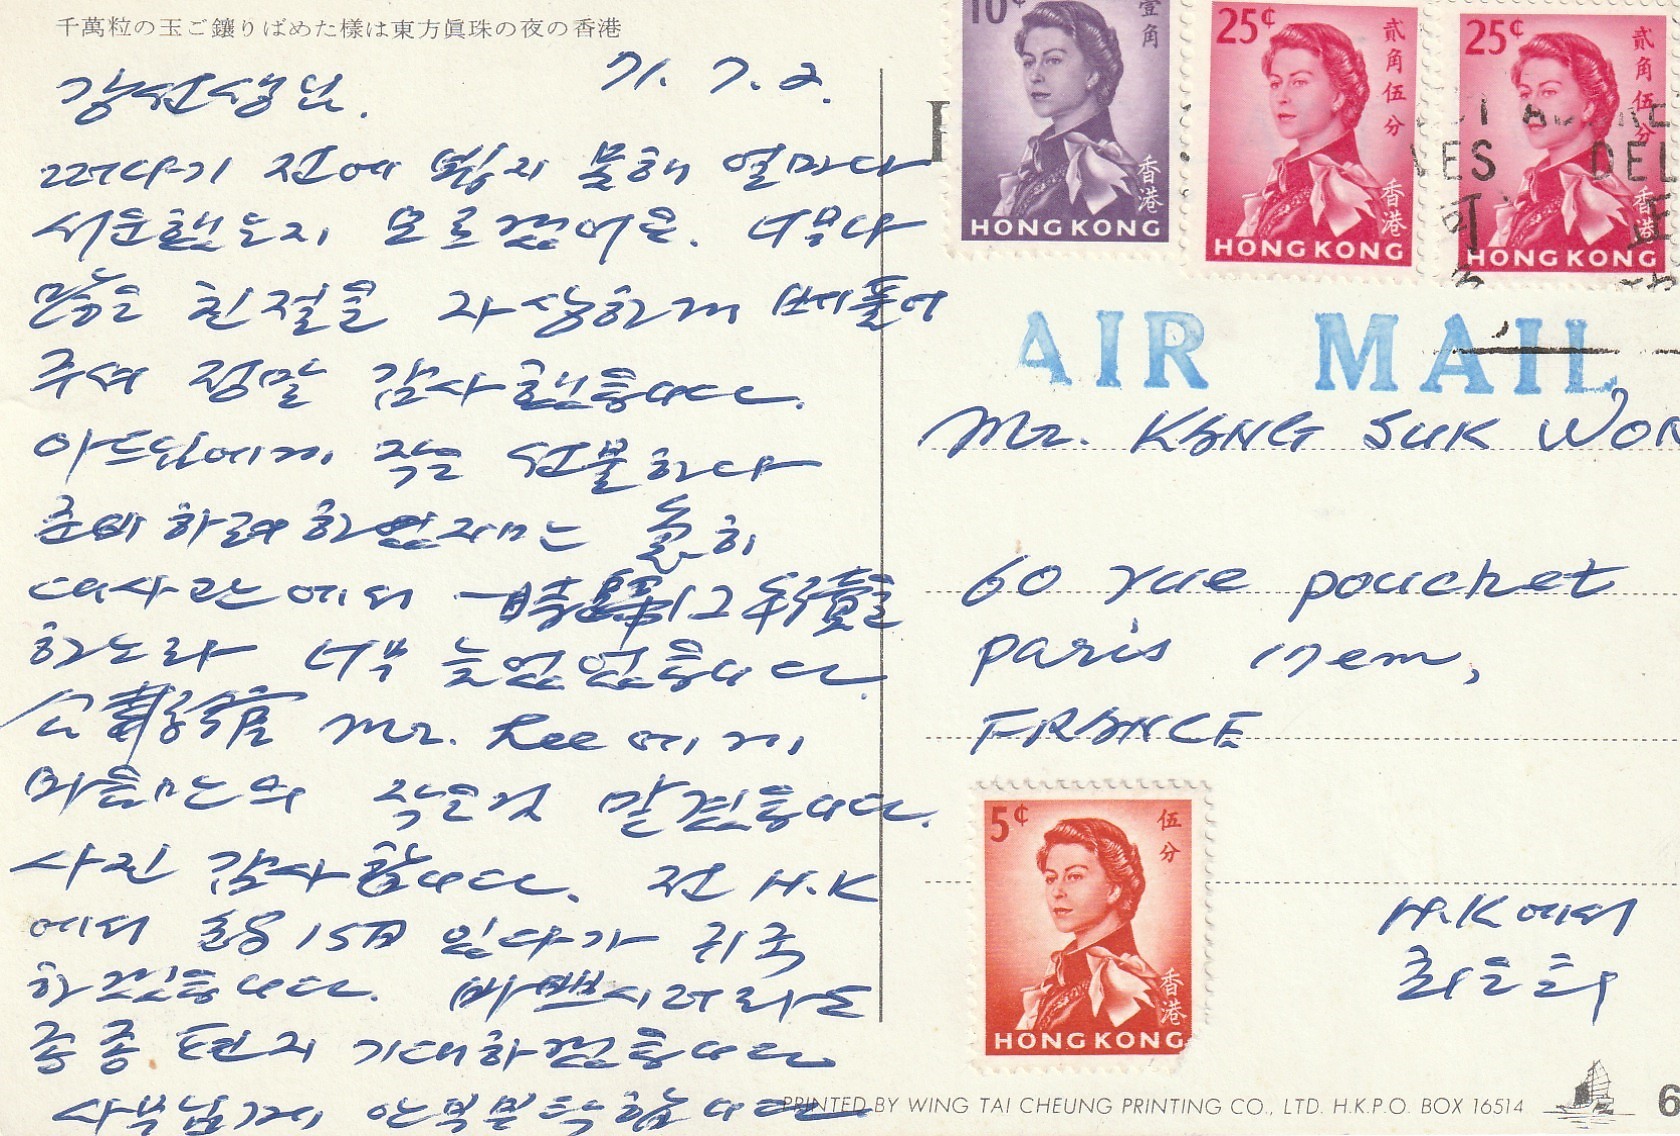 千萬粒の玉ご鑲りばめた樣は東方眞珠の夜の香港
71. 7. 2.
강선생님.
떠나기 전에 뵙지 못해 얼마나
서운했는지 모르겠어요. 너무나
많은 친절을 자상하게 베풀어
주셔 정말 감사했습니다.
아드님에게 작은 선물하나
준비하려 하였지마는 急히
대사관에서 一時歸国 手續을
하노라 너무 늦었었습니다.
公報館 Mr. Lee 에게
마음만의 작은것 맡겼습니다.
사진 감사합니다. 전 H.K
에서 초용 15日 있다가 귀국
하겠습니다. 바쁘시더라도
종종 편지 기대하겠습니다.
사부님께 안부부탁합니다.
10¢ 壹角 香港
HONG KONG
25¢ 貳角伍分 香港
HONG KONG
25¢ 貳角伍分 香港
HONG KONG
VES DEL
AIR MAIL
Mr. KANG SUK WON
60 rue pouchet
paris 17em,
FRANCE
5¢ 伍分 香港
HONG KONG
H.K에서
최
PRINTED BY WING TAI CHEUNG PRINTING CO., LTD. H.K.P.O. BOX 16514
6